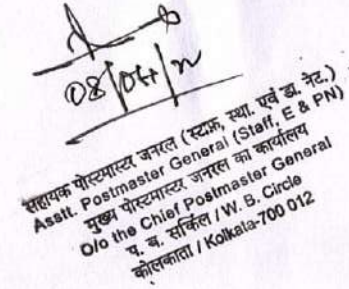 08/04/22
सहायक पोस्टमास्टर जनरल (स्टाफ, स्था. एवं डा. नेट.)
Asstt. Postmaster General (Staff, E & PN)
मुख्य पोस्टमास्टर जनरल का कार्यालय
O/o the Chief Postmaster General
प. ब. सर्किल / W. B. Circle
कोलकाता / Kolkata-700 012